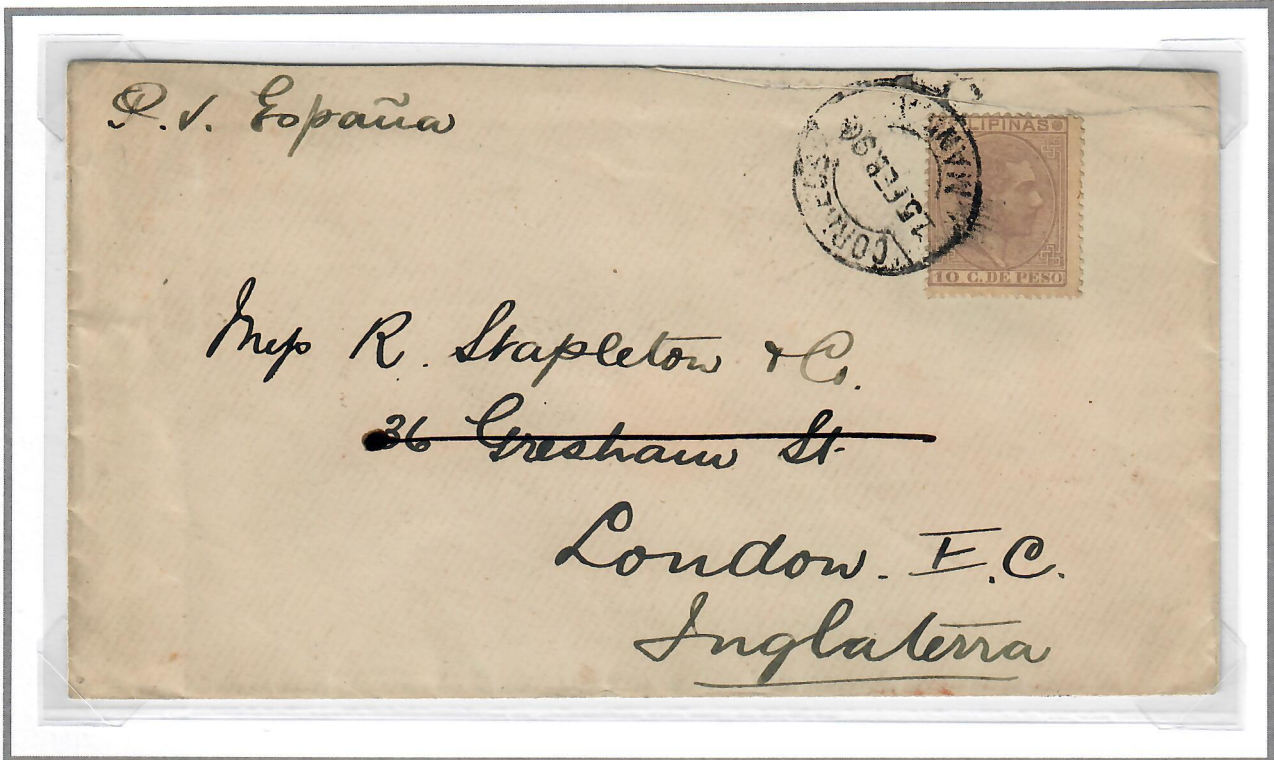 P. v. España
CORREOS
MANILA
15 FEB 90
FILIPINAS
10 C. DE PESO
Mess R. Stapleton & Co.
36 Gresham St.
London. E.C.
Inglaterra